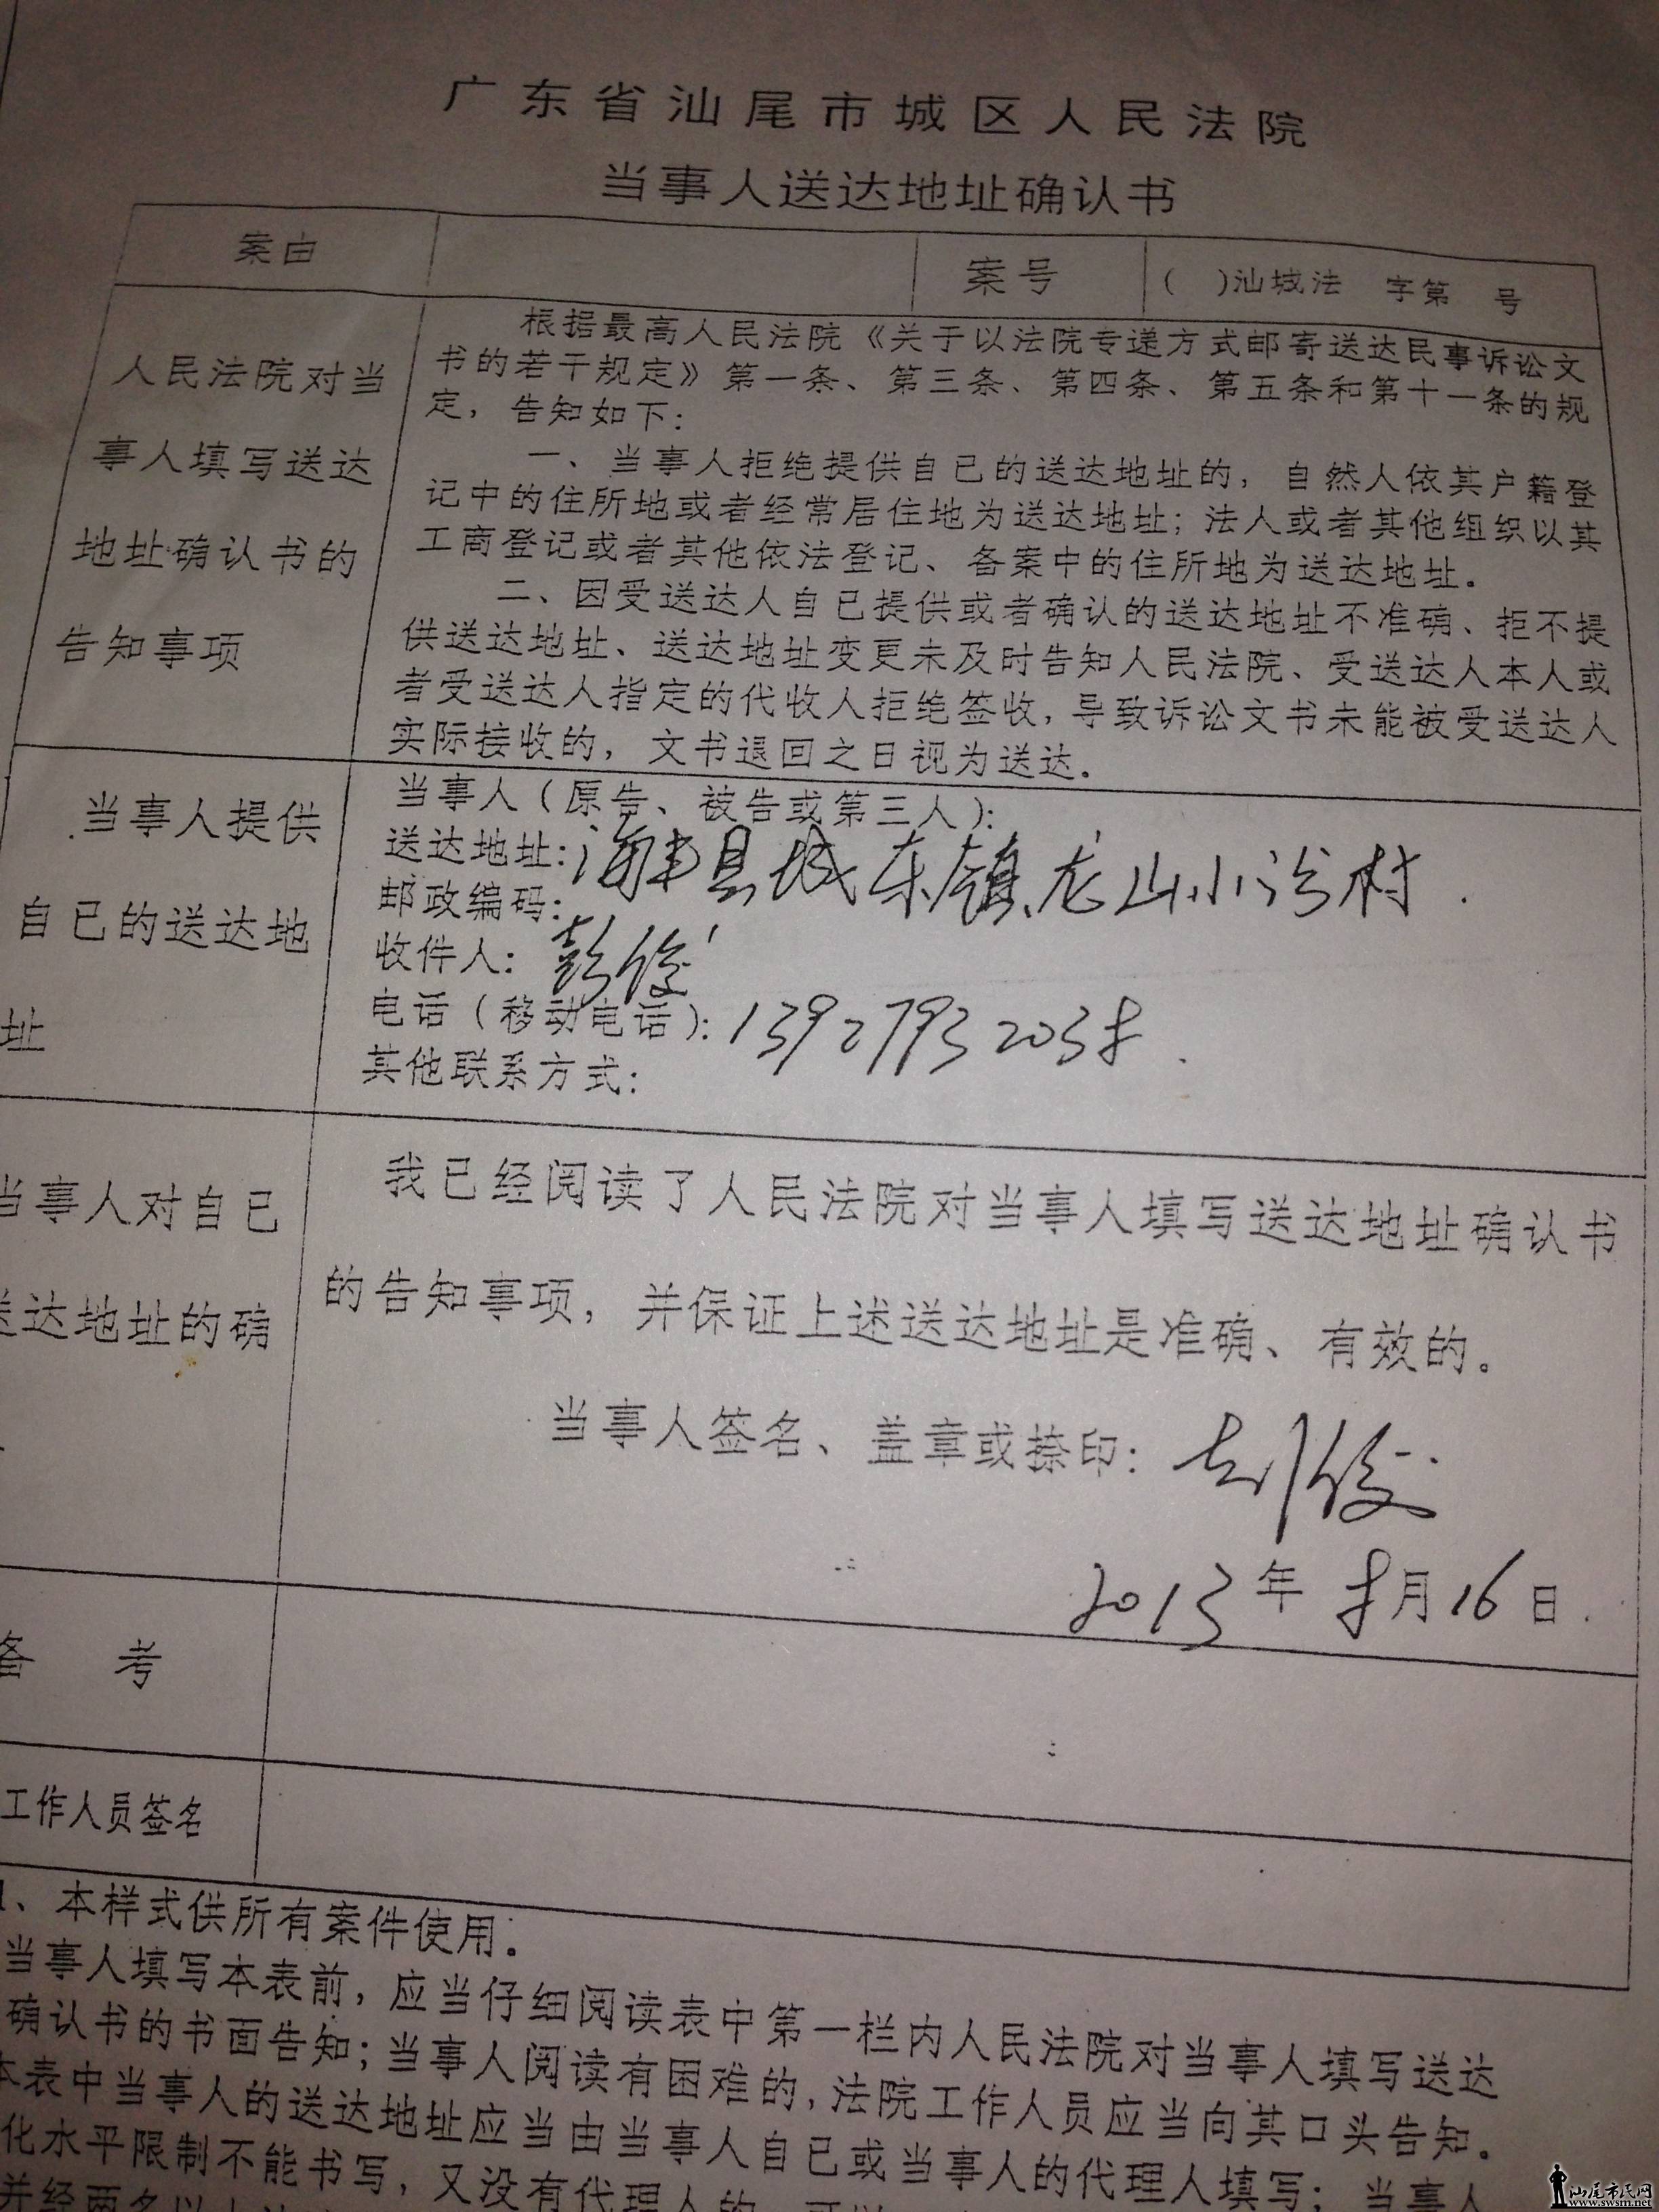 广东省汕尾市城区人民法院
当事人送达地址确认书
案由
案号
( )汕城法 字第 号
人民法院对当
事人填写送达
地址确认书的
告知事项
根据最高人民法院《关于以法院专递方式邮寄送达民事诉讼文
书的若干规定》第一条、第三条、第四条、第五条和第十一条的规
定，告知如下：
一、当事人拒绝提供自己的送达地址的，自然人依其户籍登
记中的住所地或者经常居住地为送达地址；法人或者其他组织以其
工商登记或者其他依法登记、各案中的住所地为送达地址。
二、因受送达人自己提供或者确认的送达地址不准确、拒不提
供送达地址、送达地址变更未及时告知人民法院、受送达人本人或
者受送达人指定的代收人拒绝签收，导致诉讼文书未能被受送达人
实际接收的，文书退回之日视为送达。
当事人提供
自己的送达地
址
当事人（原告、被告或第三人）：
送达地址：海丰县城东镇龙山小汾村.
邮政编码：
收件人：彭俊
电话（移动电话）：13927932038.
其他联系方式：
当事人对自己
送达地址的确
我已经阅读了人民法院对当事人填写送达地址确认书
的告知事项，并保证上述送达地址是准确、有效的。
当事人签名、盖章或捺印：
2013年8月16日.
备 考
工作人员签名
1、本样式供所有案件使用。
当事人填写本表前，应当仔细阅读表中第一栏内人民法院对当事人填写送达
确认书的书面告知；当事人阅读有困难的，法院工作人员应当向其口头告知。
本表中当事人的送达地址应当由当事人自己或当事人的代理人填写；当事人
化水平限制不能书写，又没有代理人的，可以
并经两名以上
汕尾市民网
www.swsm.net